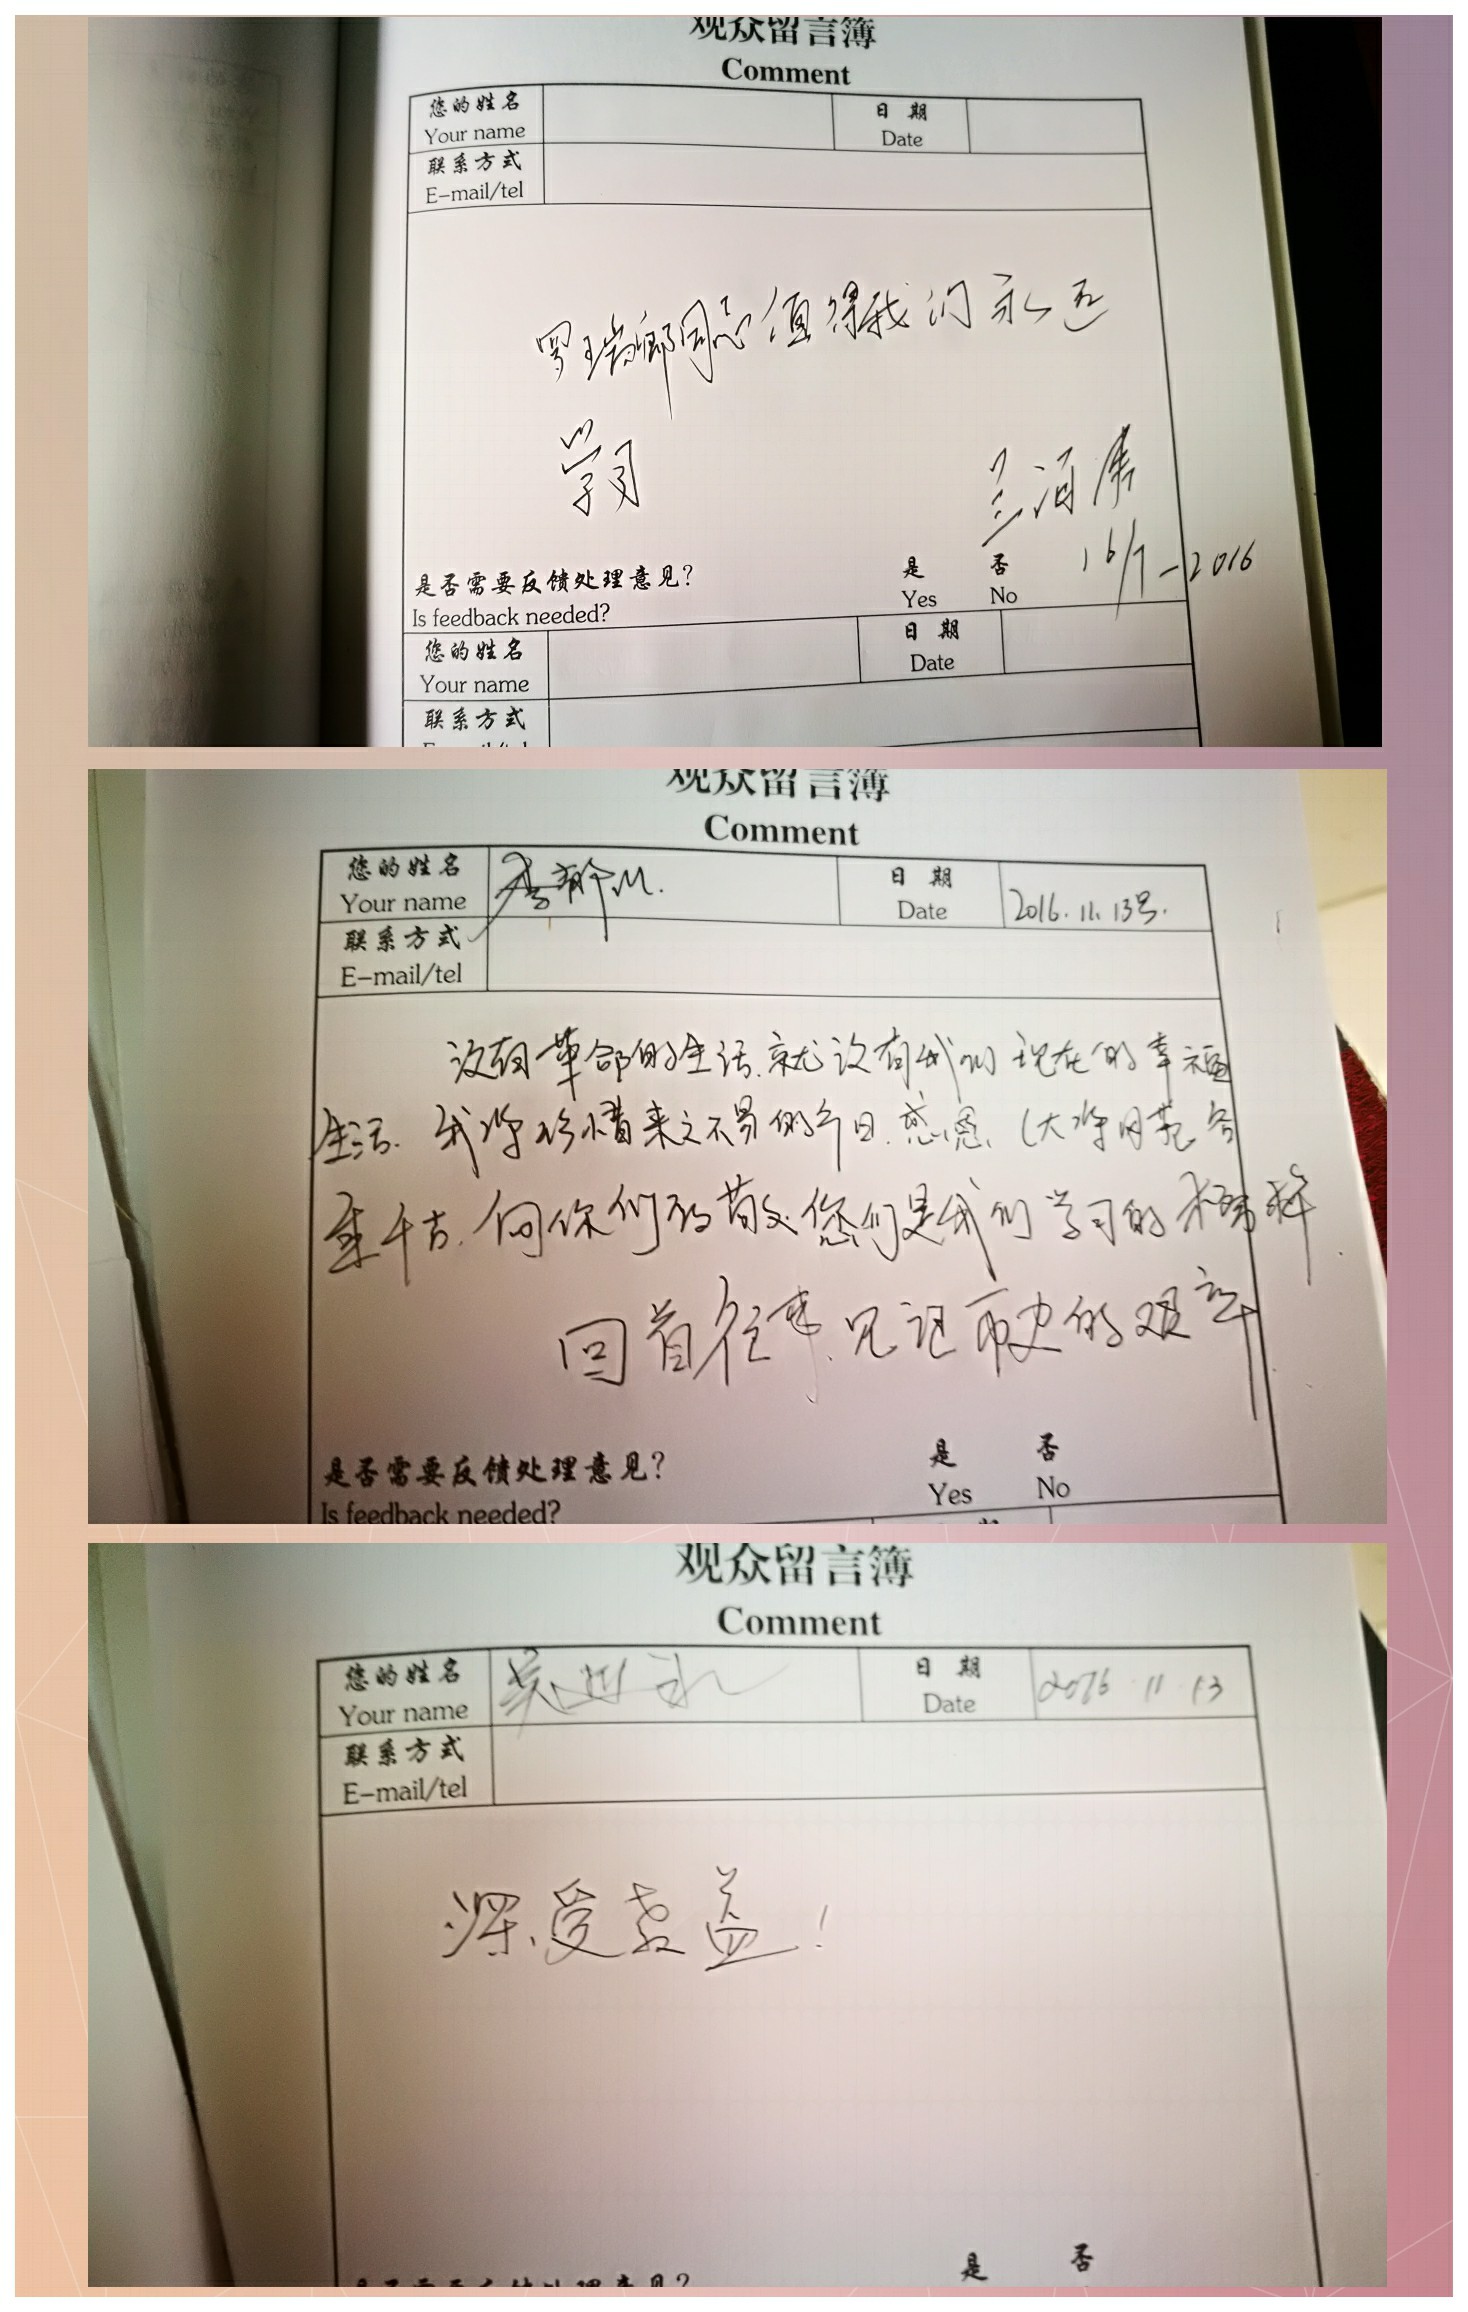 观众留言簿
Comment
您的姓名
Your name
日 期
Date
联系方式
E-mail/tel
罗瑞卿同志值得我们永远
学习
16/7-2016
是否需要反馈处理意见?
是 否
Is feedback needed?
Yes No
您的姓名
Your name
日 期
Date
联系方式
观众留言簿
Comment
您的姓名
Your name
日 期
Date
2016.11.13号.
联系方式
E-mail/tel
没有革命的生活.就没有我们现在的幸福
生活. 我将珍惜来之不易的今日.感恩
千古.向你们致敬.您们是我们学习的榜样.
回首往事.见证历史的艰辛
是否需要反馈处理意见?
是 否
Is feedback needed?
Yes No
观众留言簿
Comment
您的姓名
Your name
日 期
Date
2016 11 13
联系方式
E-mail/tel
深受教益!
是 否
是否需要反馈处理意见?